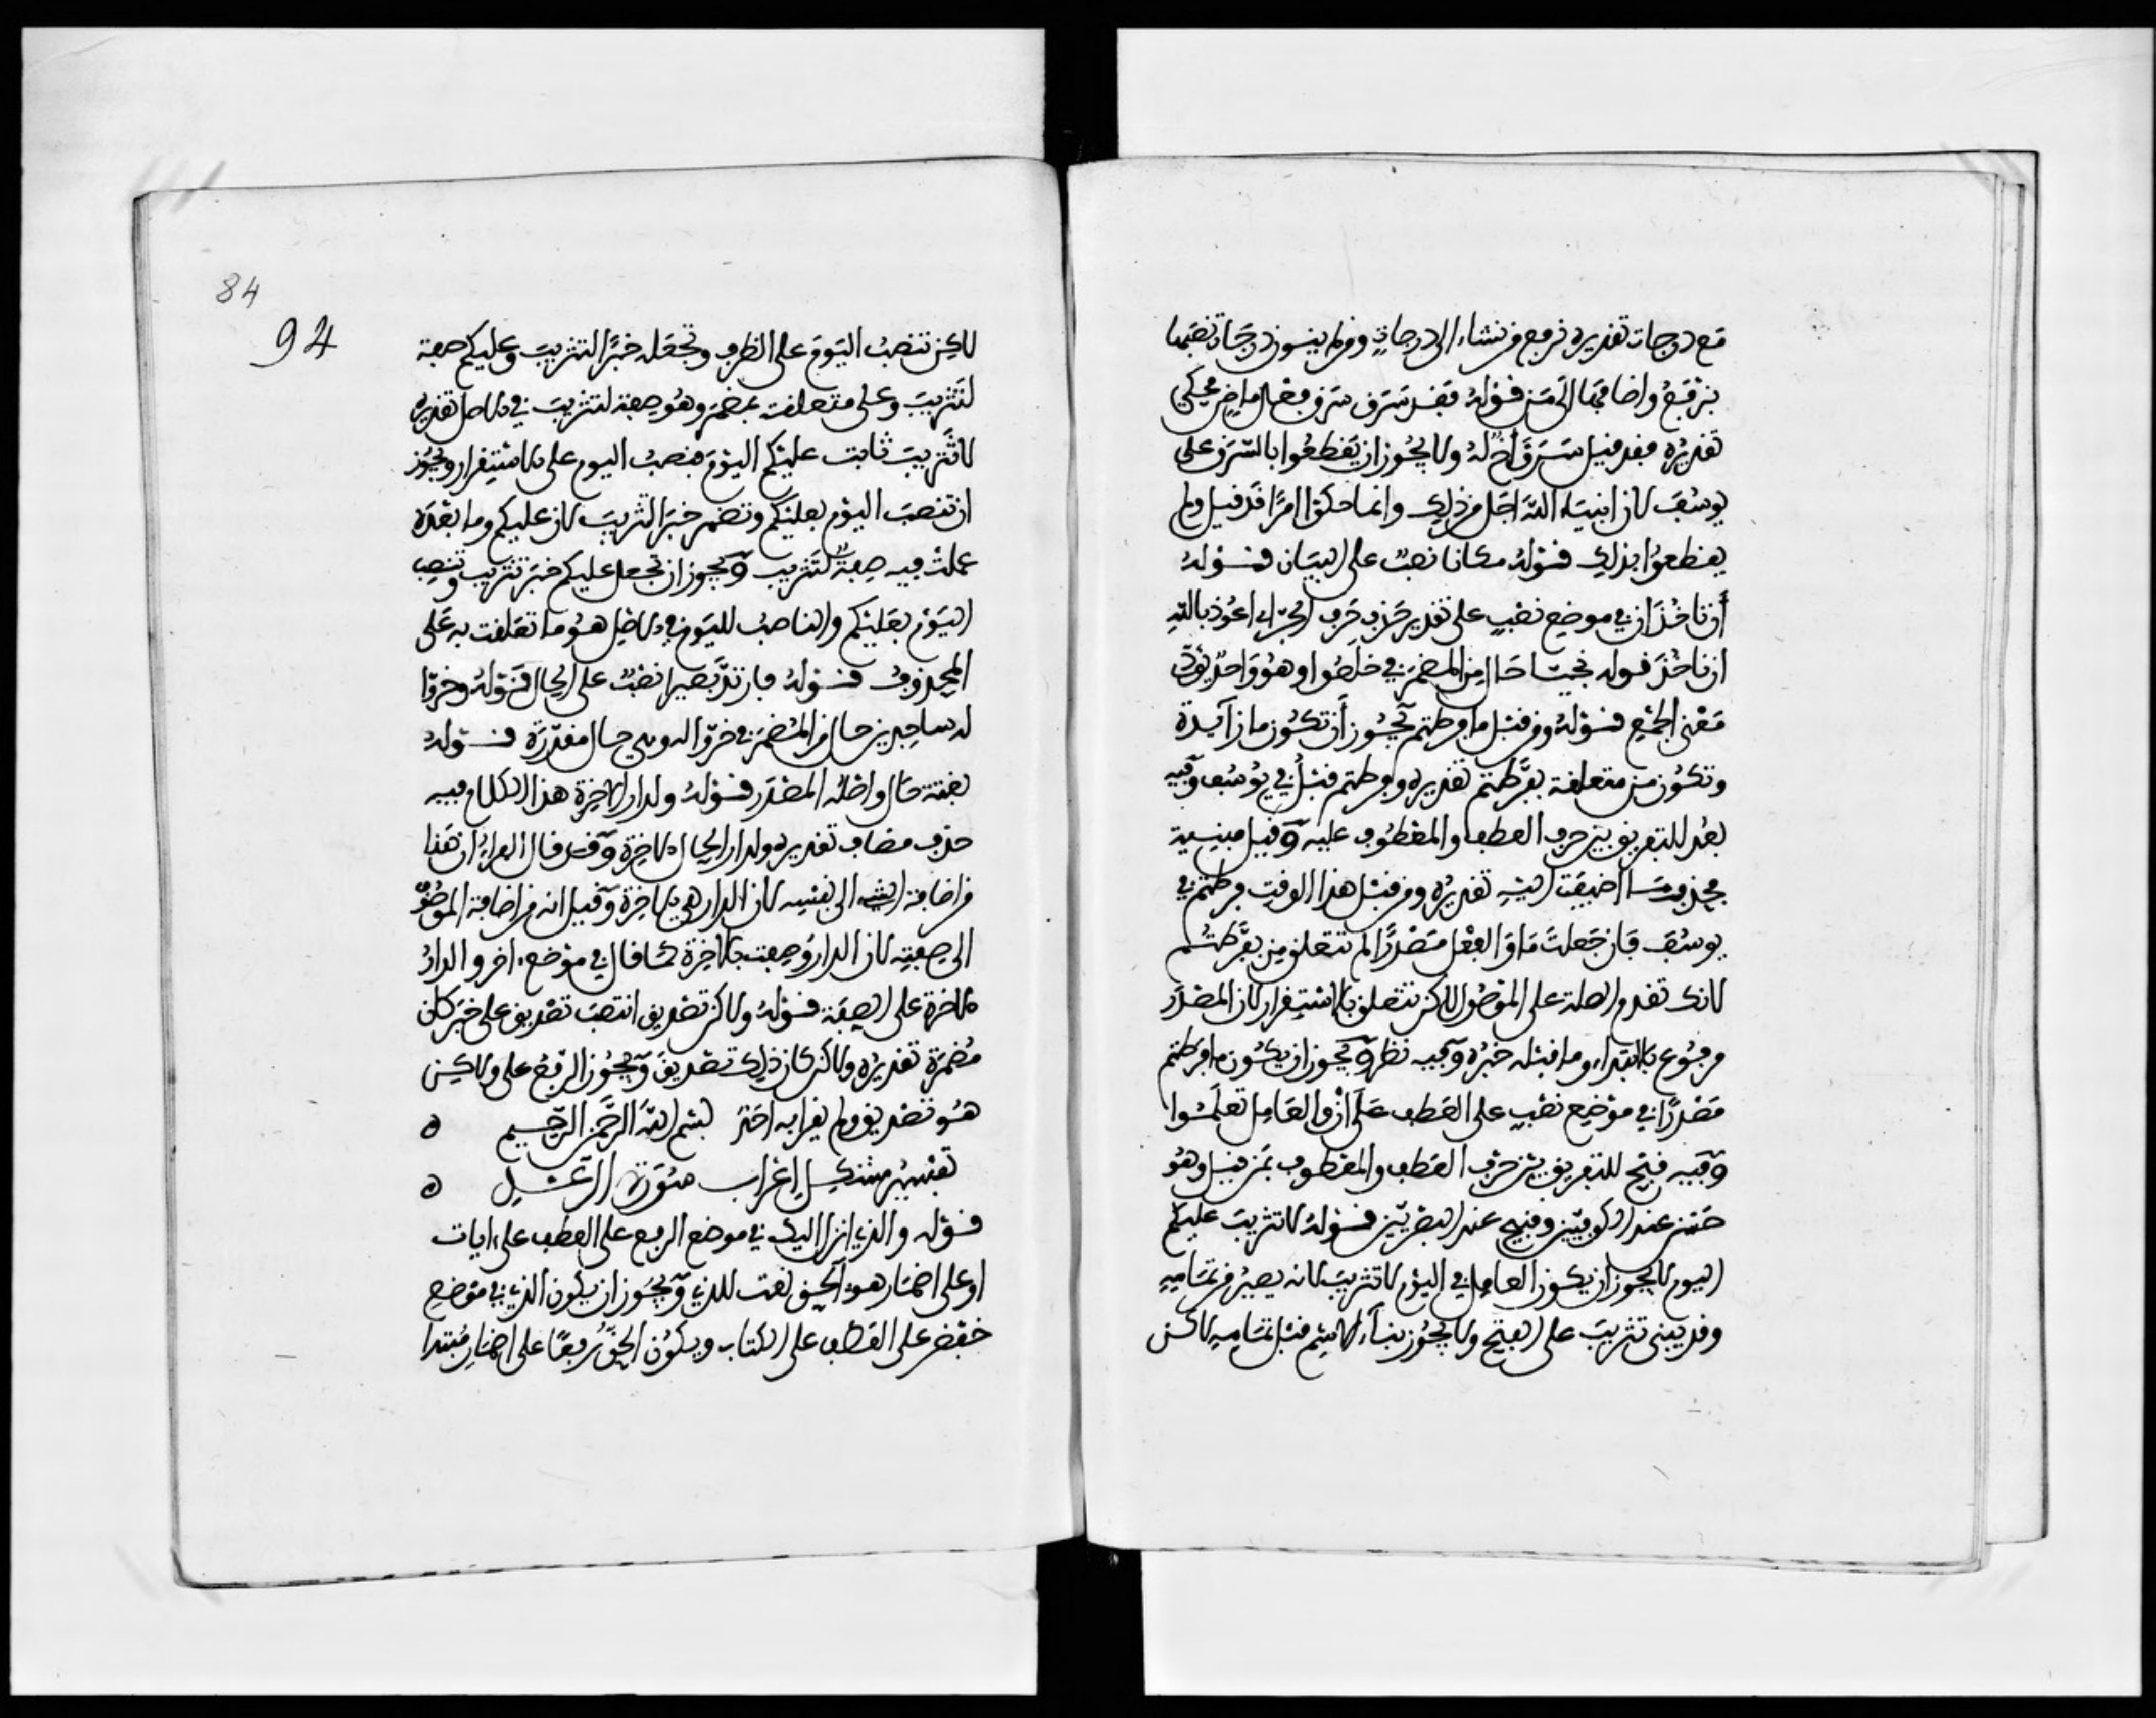 مع درجات تقديره نرفع من نشاء الى درجات ومن لم ينون درجات نصبها
بنرفع واضافها الى من قوله فقد سرق سرق فعل ماض محكي
تقديره فقد قيل سرق اخ له ولا يجوز ان يقطعوا بالسرق على
يوسف لان انبياء الله اجل من ذلك وانما حكوا امرا قد قيل ولم
يقطعوا بذلك قوله مكانا نصب على البيان قوله
أن ناخذ ان في موضع نصب على تقدير حذف حرف الجر اي اعوذ بالله
ان ناخذ قوله نجيا حال من المضمر في خلصوا وهو واحد يؤدي
معنى الجمع قوله ومن قبل ما فرطتم يجوز أن تكون ما زايدة
وتكون من متعلقة بفرطتم تقديره وفرطتم قبل في يوسف وفيه
بعد للتفريق بين حرف العطف والمعطوف عليه وقيل من
محذوف اضيفت اليه تقديره ومن قبل هذا الوقت فرطتم في
يوسف فان جعلت ما والفعل مصدرا لم تتعلق من بفرطتم
لانك تقدم الصلة على الموصول لاكن تتعلق بالاستقرار لان المصدر
مرفوع بالابتداء وما قبله خبره وفيه نظر ويجوز ان يكون ما فرطتم
مصدرا في موضع نصب على العطف على أن والعامل تعلموا
وفيه قبح للتفريق بين حرف العطف والمعطوف بمن قبل وهو
حسن عند الكوفيين وقبيح عند البصريين قوله لا تثريب عليكم
اليوم لا يجوز ان يكون العامل في اليوم لا تثريب لانه يصير من تمامه
وقد بني تثريب على الفتح ولا يجوز بناء الاسم قبل تمامه لاكن
84
94
لاكن تنصب اليوم على الظرف وتجعله خبرا لتثريب وعليكم صفة
لتثريب وعلى متعلقة بمضمر وهو صفة لتثريب في الاصل تقديره
لا تثريب ثابت عليكم اليوم فنصب اليوم على الاستقرار ويجوز
ان تنصب اليوم بعليكم وتضمر خبر التثريب لان عليكم وما بعده
عملت فيه صفة لتثريب ويجوز ان تجعل عليكم خبر تثريب وتنصب
اليوم بعليكم والناصب لليوم في الاصل هو ما تعلقت به على
المحذوف قوله فارتد بصيرا نصب على الحال قوله وخروا
له ساجدين حال من المضمر في خروا له وهي حال مقدرة قوله
بغتة حال واصله المصدر قوله ولدار الاخرة هذا الكلام فيه
حذف مضاف تقديره ولدار الحال الاخرة وقد قال الفراء ان هذا
من اضافة الشيء الى نفسه لان الدار هي الاخرة وقيل انه من اضافة الموصوف
الى صفته لان الدار وصفت بالاخرة كما قال في موضع اخر والدار
الاخرة على الصفة قوله ولاكن تصديق انتصب تصديق على خبر كان
مضمرة تقديره ولاكن كان ذلك تصديق ويجوز الرفع على ولاكن
هو تصديق ولم يقرا به احد بسم الله الرحمن الرحيم ه
تفسير مشكل اعراب سورة الرعد ه
قوله والذي انزل اليك في موضع الرفع على العطف على ايات
او على اضمار هو الحق نعت للذي ويجوز ان يكون الذي في موضع
خفض على العطف على الكتاب ويكون الحق رفعا على اضمار مبتدا